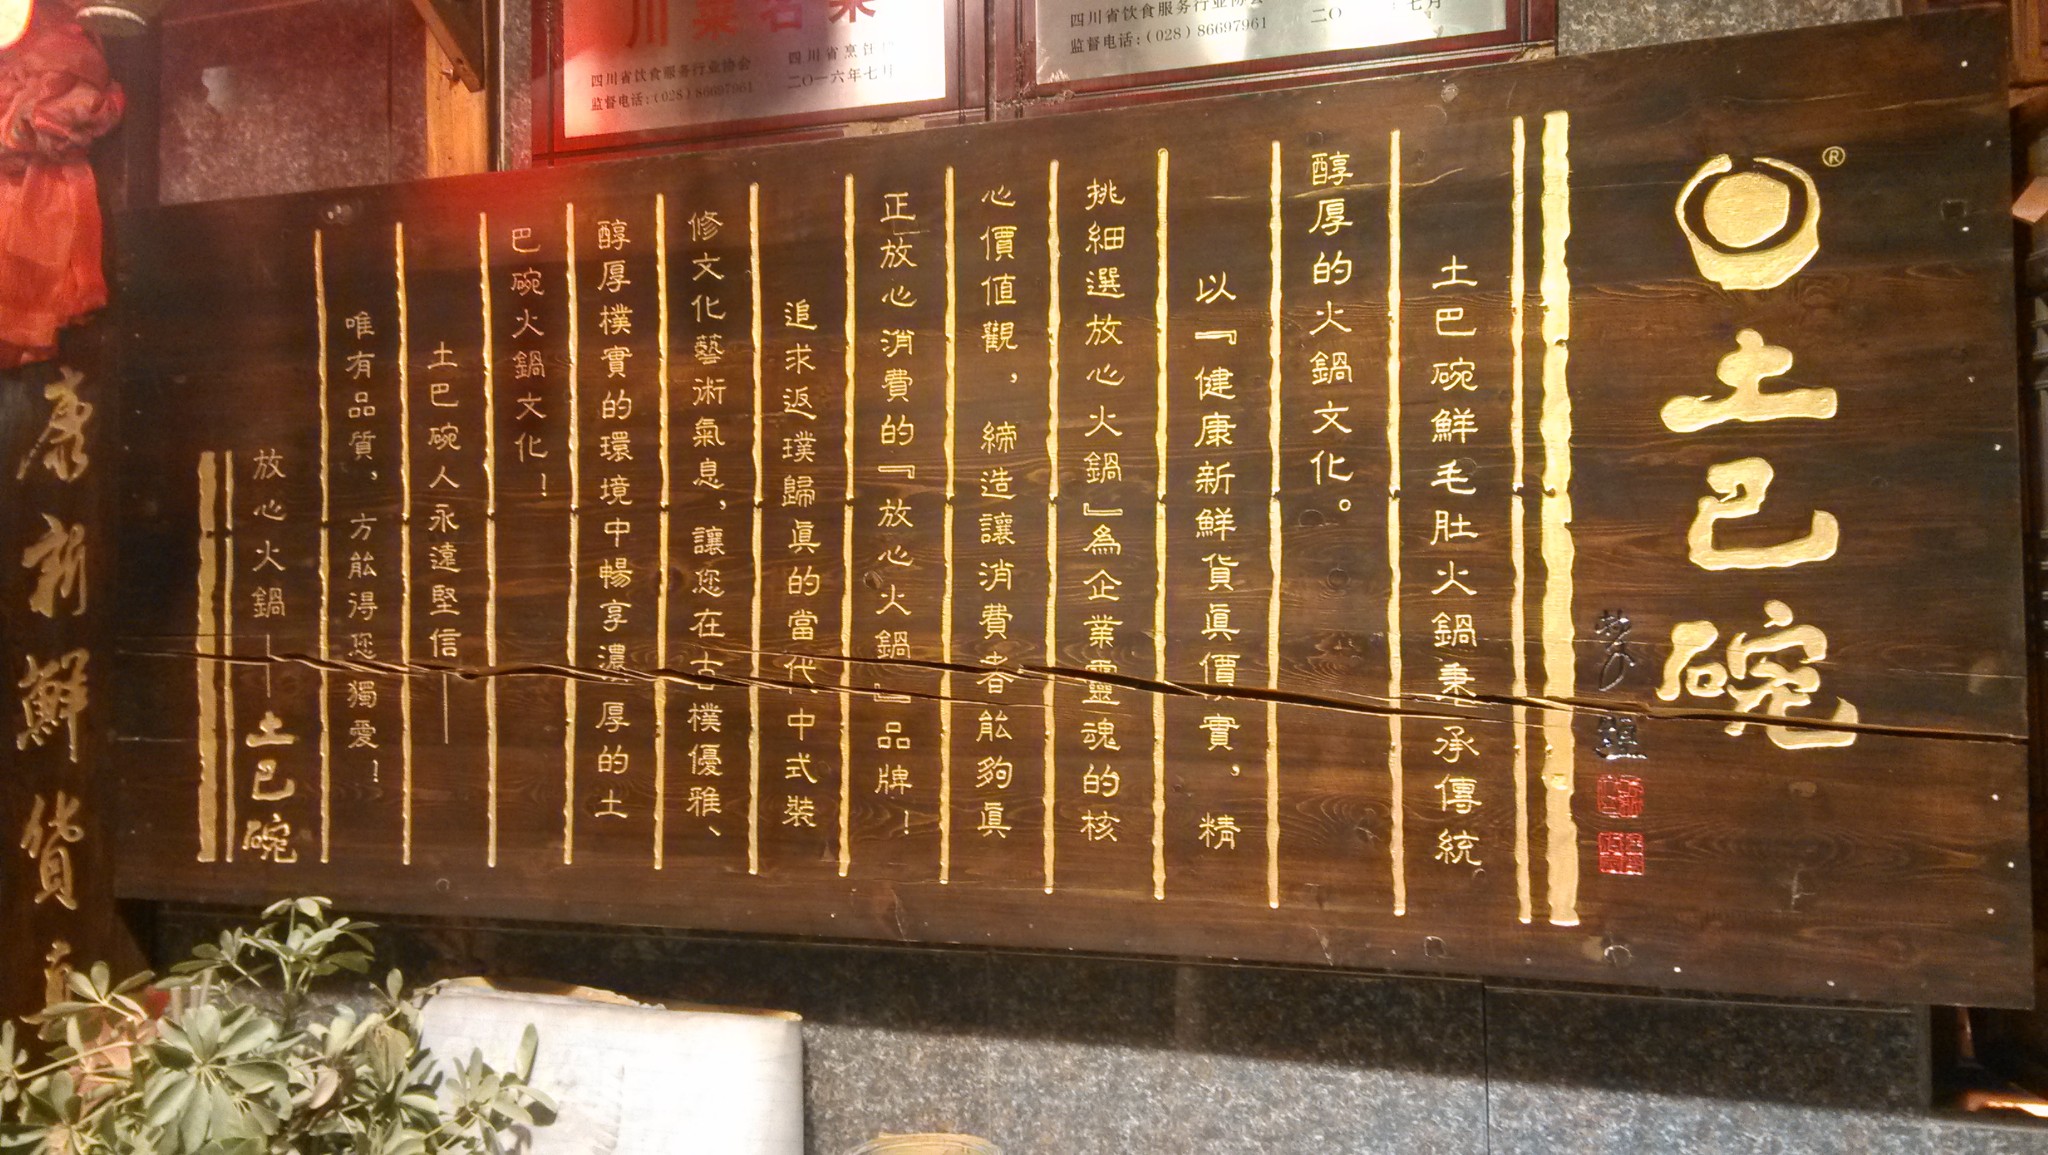 土巴碗
®
土巴碗鮮毛肚火鍋秉承傳統
醇厚的火鍋文化。
以『健康新鮮貨眞價實，精
挑細選放心火鍋』為企業靈魂的核
心價值觀，締造讓消費者能夠眞
正放心消費的『放心火鍋』品牌！
追求返璞歸眞的當代中式裝
修文化藝術氣息，讓您在古樸優雅、
醇厚樸實的環境中暢享濃厚的土
巴碗火鍋文化！
土巴碗人永遠堅信——
唯有品質，方能得您獨愛！
放心火鍋——土巴碗
康新鮮貨
川菜名菜
四川省饮食服务行业协会
四川省烹饪
监督电话：(028) 86697961
二〇一六年七月
四川省饮食服务行业协会
监督电话：(028) 86697961
二〇
七月